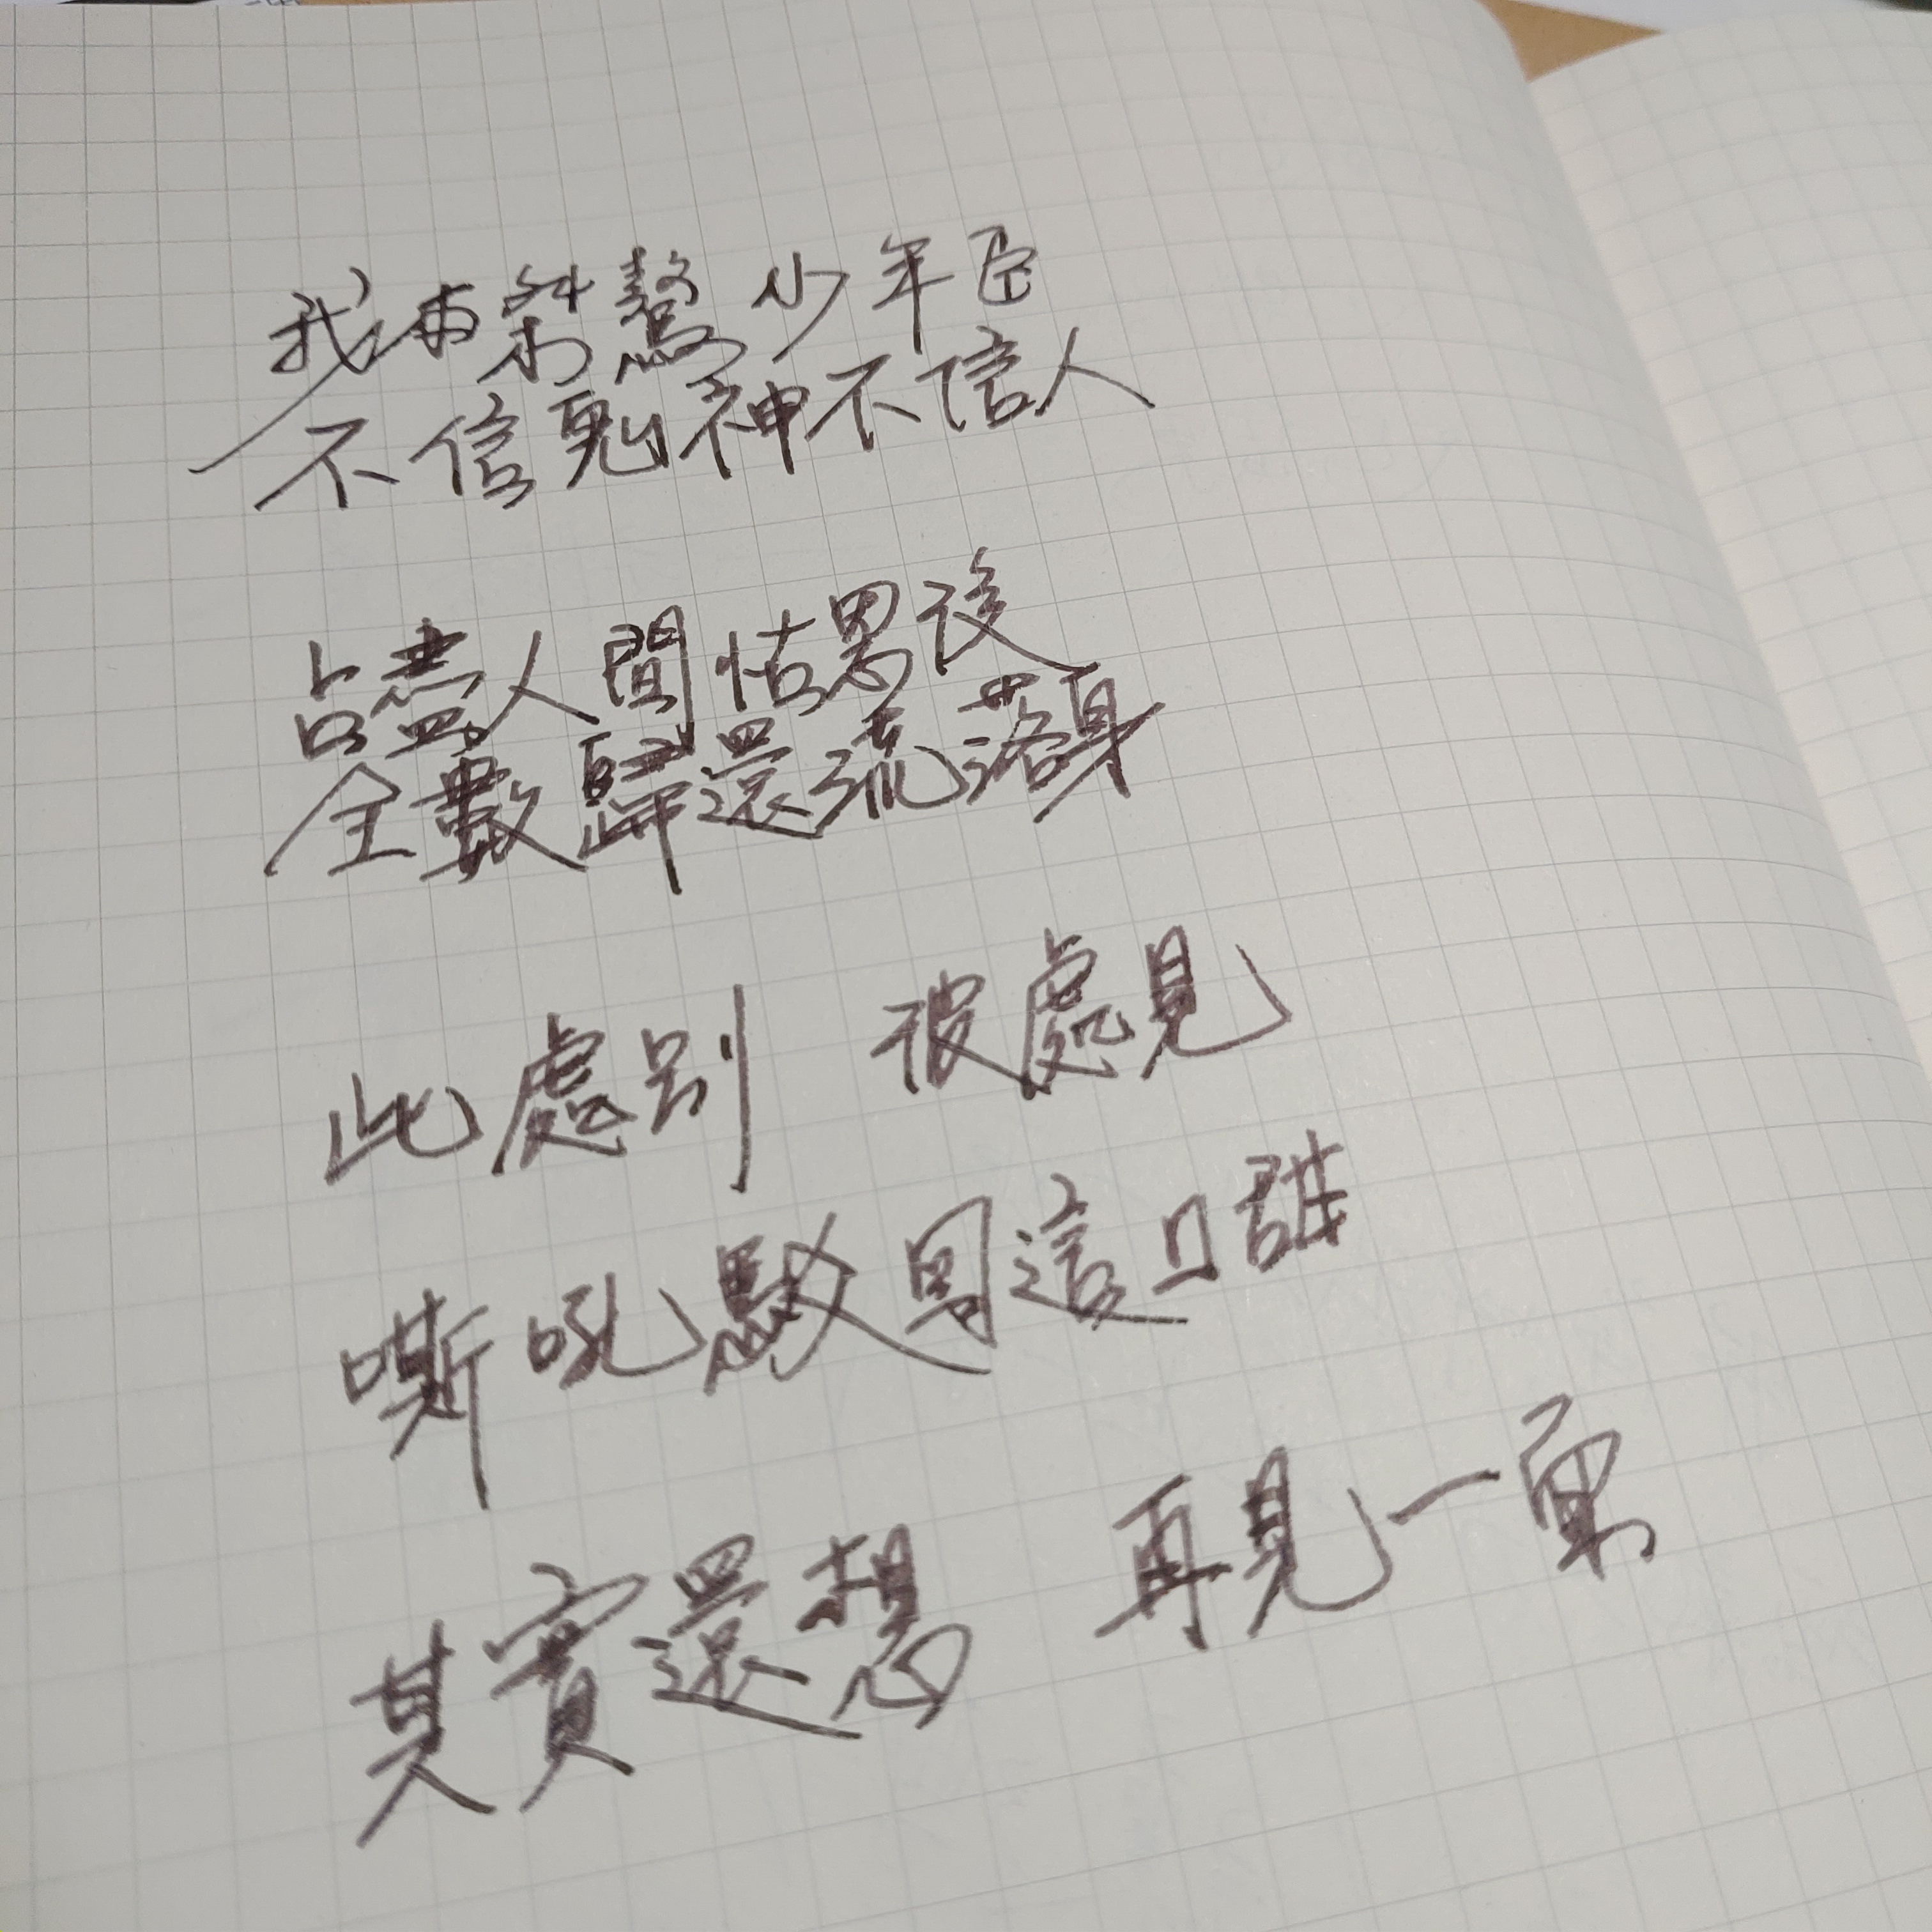 我本桀驁少年臣
不信鬼神不信人
占盡人間怙恩後
全數歸還流落身
此處別 彼處見
嘶吼駁回這口
其實還想 再見一面